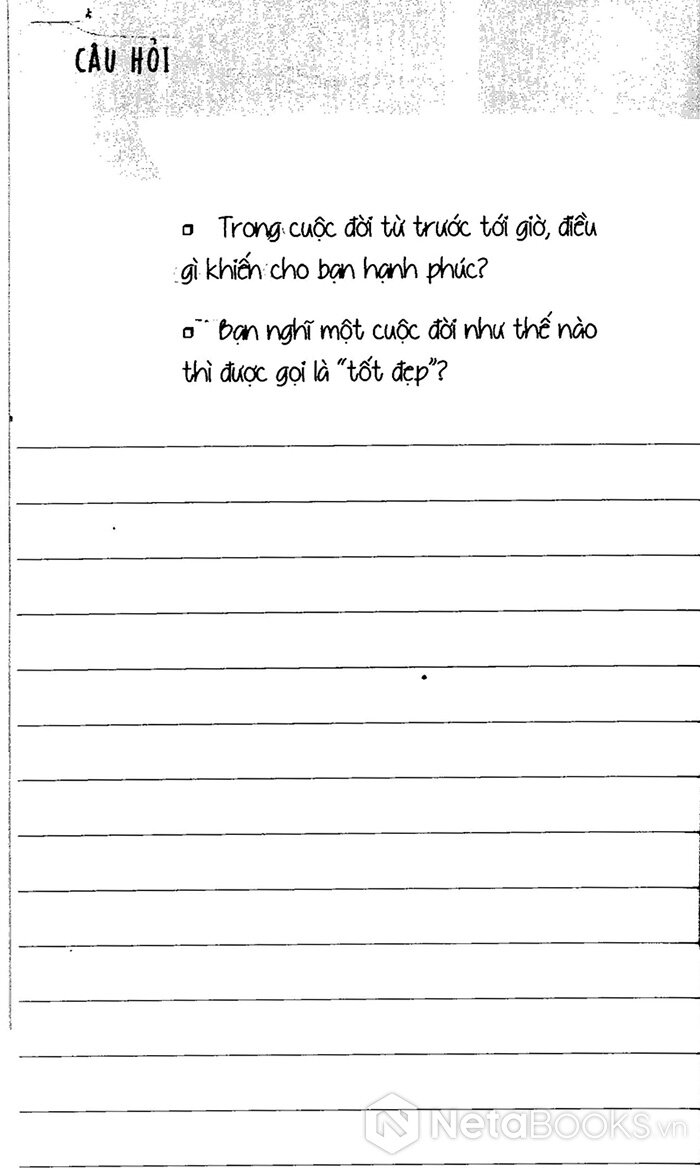 CÂU HỎI
▫ Trong cuộc đời từ trước tới giờ, điều
gì khiến cho bạn hạnh phúc?
▫ Bạn nghĩ một cuộc đời như thế nào
thì được gọi là "tốt đẹp"?
NETABOOKS.vn